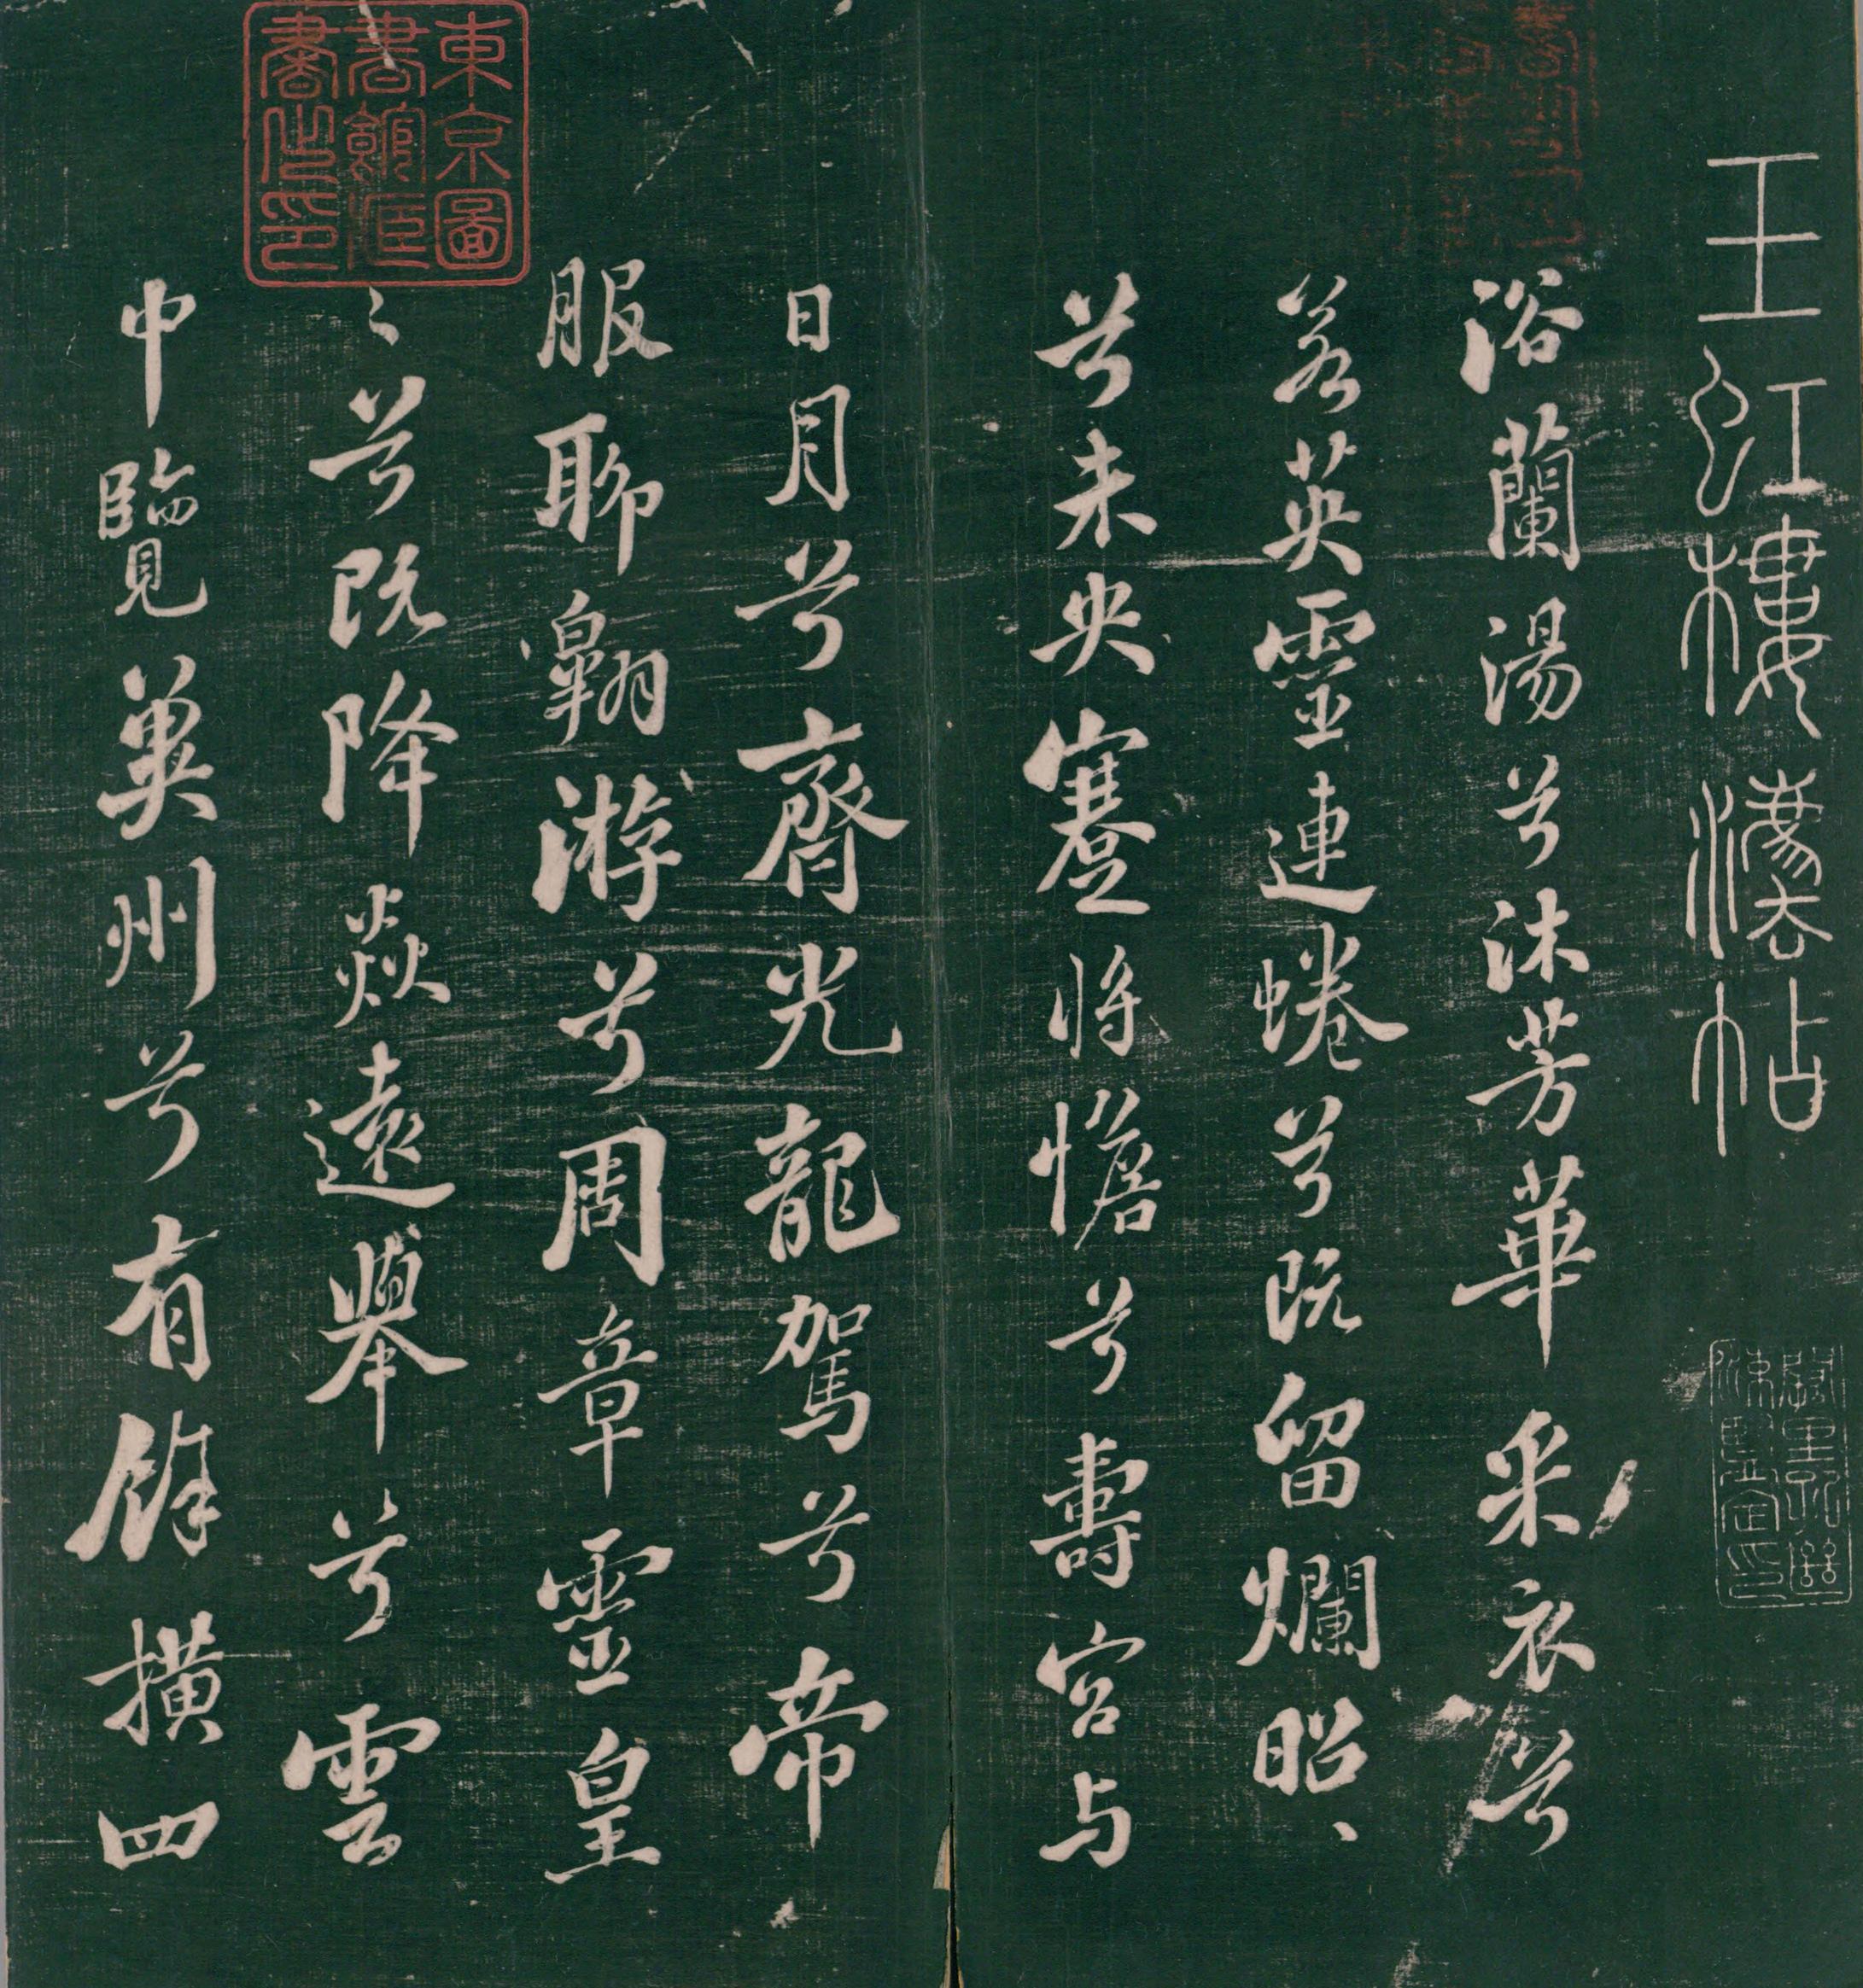 玉虹樓灋帖
浴蘭湯兮沐芳華采衣兮
若英靈連蜷兮既留爛昭、
兮未央蹇將憺兮壽宮与
日月兮齊光龍駕兮帝
服聊翱游兮周章靈皇
〻兮既降焱遠舉兮雲
中覽兾州兮有餘橫四
東京圖
書館㡳
書之印
闕里孔繼
涑鑒定印